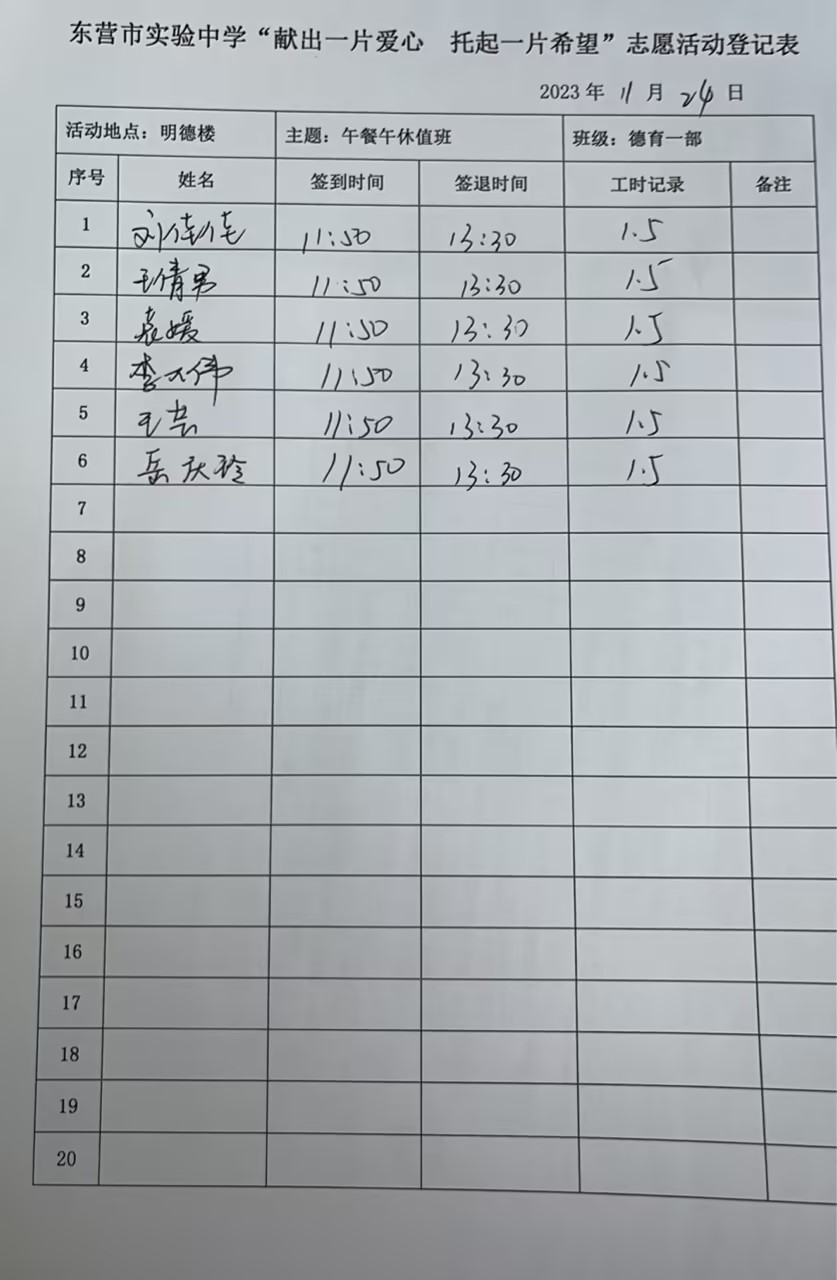 东营市实验中学“献出一片爱心 托起一片希望”志愿活动登记表
2023 年 11 月 24 日
活动地点：明德楼 主题：午餐午休值班 班级：德育一部
序号 姓名 签到时间 签退时间 工时记录 备注
1 刘佳佳 11:50 13:30 1.5
2 王倩男 11:50 13:30 1.5
3 袁媛 11:50 13:30 1.5
4 李大伟 11:50 13:30 1.5
5 王芸 11:50 13:30 1.5
6 岳庆玲 11:50 13:30 1.5
7
8
9
10
11
12
13
14
15
16
17
18
19
20